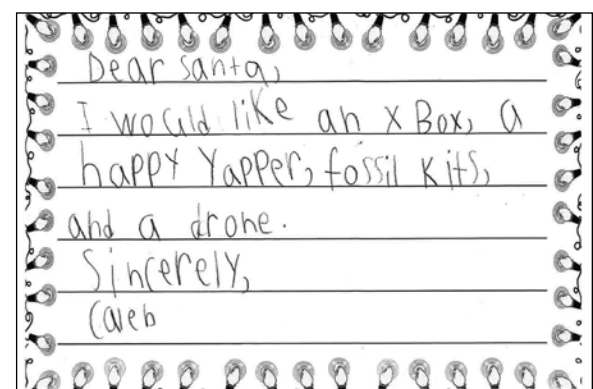 Dear Santa,
I would like an X Box, a
happy Yapper, fossil Kits,
and a drone.
Sincerely,
Caleb